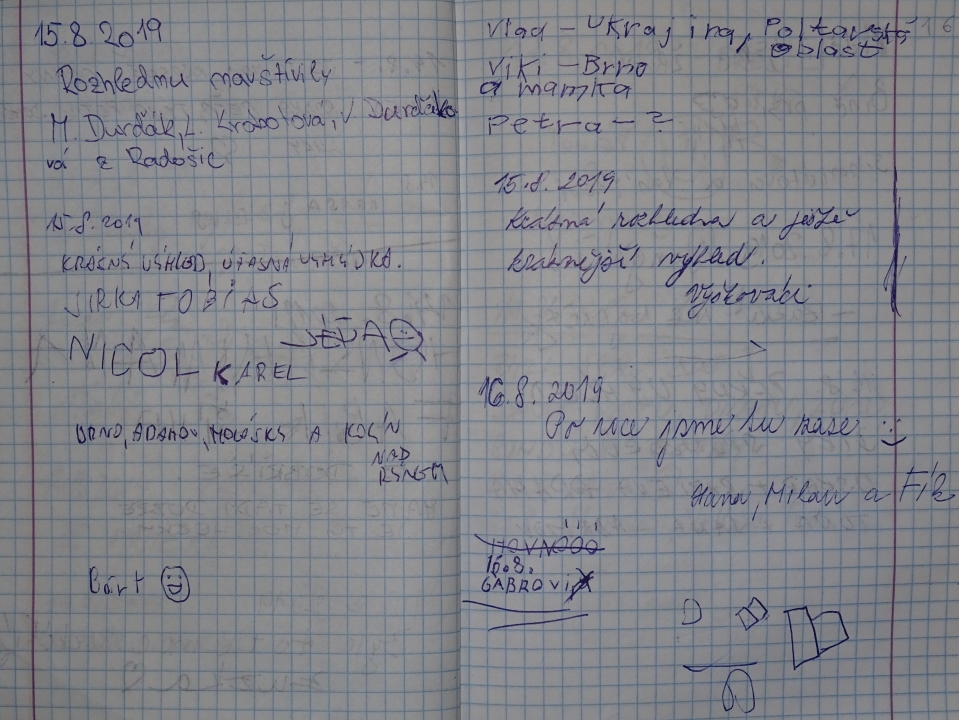 15.8.2019
Rozhlednu navštívily
M. Durďák, L. Krabotova, V Durďáko
vá z Radošic
15.8.2019
KRÁSNÝ VÝHLED, ÚŽASNÁ VYHLÍDKA.
JIRKA TOBIÁŠ
NICOL KAREL
BRNO, ADAMOV, A
NAD
Bárt
Vlad - Ukrajina, Poltavská
oblast
Viki - Brno
a mamka
Petra - ?
15.8.2019
Krásná rozhledna a ještě
krásnější výhled.
Vyškováci
16.8.2019
Po roce jsme tu zase :)
Hana, Milan a Fík
HOVNOOO
16.8.
GABROVI